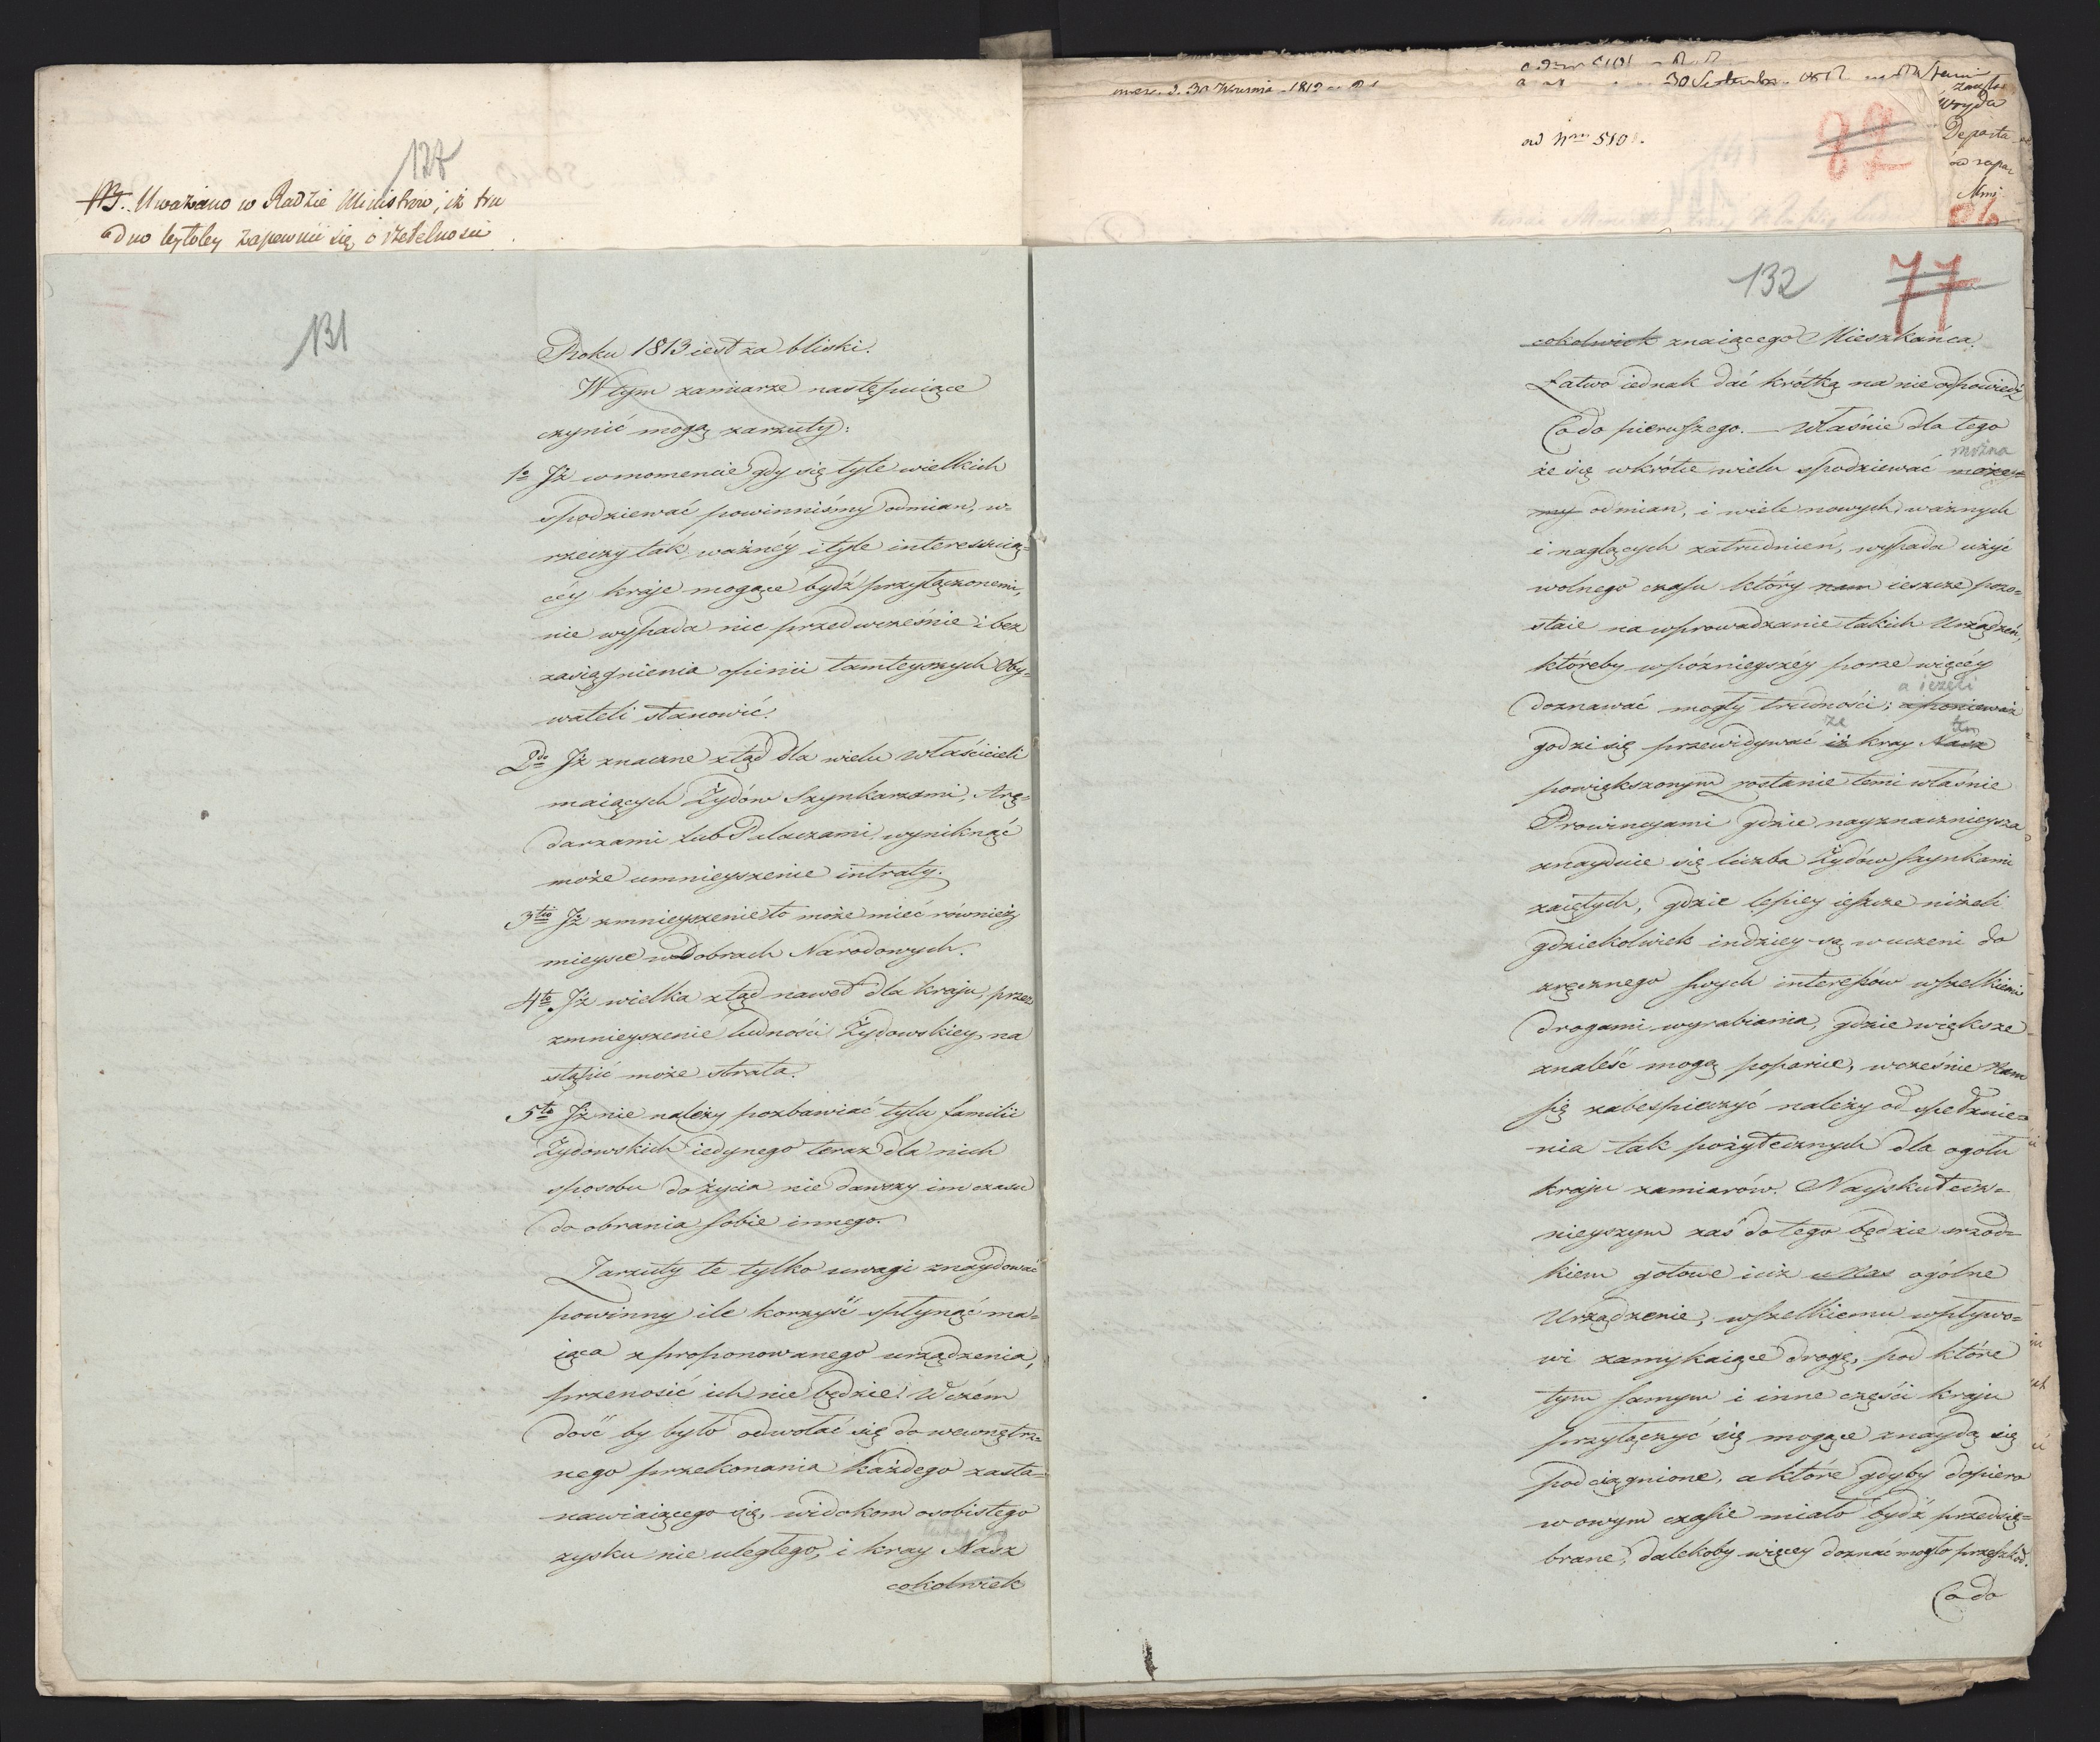 128
NB. Uważano w Radzie Ministrow, iż tru
dno bęłobey zapewnić się o rzetelnosci
131
Roku 1813 iest za bliski.
W tym zamiarze następuiące
czynić mogą zarzuty:
1o Jż w momencie gdy się tyle wielkich
spodziewać powinniśmy odmian, w
rzeczy ták ważnéy i tyle interessuią=
céy kraje mogące bydź przyłączonemi,
nie wypada nic przedwcześnie i bez
zasiągnienia opinii tamteyszych Oby=
wateli stanowić.
2do Jż znaczne ztąd dla wielu właścicieli
maiących Żydów Szynkarzami, Arę=
darzami lub Palaczami, wyniknąć
może umnieyszenie intraty.
3tio Jż zmnieyszenie to może mieć również
mieysce w Dobrach Narodowych.
4to Jż wielka ztąd nawet dla kraju, przez
zmnieyszenie ludności Żydowskiey na
stąpić może strata.
5to Jż nie należy pozbawiać tylu familii
Żydowskich iedynego teraz dla nich
sposobu do życia nie dawszy im czasu
do obrania sobie innego.
Zarzuty te tylko uwagi znaydować
powinny ile korzyść spłynąć ma=
iąca z proponowanego urządzenia,
przenosić ich nie będzie. W czém
dość by było odwołać się do wewnętrz=
nego przekonania każdego zasta=
nawiaiącego się, widokom osobistego
zysku nie uległego, i kray Nasz
cokolwiek
30 Września 1812
30 Septembra
ad Nrm 510
82
Woyda
Departa
132
77
cokolwiek znaiącego Mieszkańca.
Łatwo iednak dać krótką na nie odpowiedź
Co do pierwszego. — Właśnie dla tego
można
że się wkrótce wielu spodziewać możey=
my odmian, i wiele nowych, ważnych
i naglących zatrudnień, wypada użyć
wolnego czasu który nam ieszcze pozo=
staie na wprowadzanie takich Urządzeń,
któreby w późnieyszéy porze więcéy
a ieżeli
doznawać mogły trudności; a ponieważ
że ten
godzi się przewidywać iż kray Nasz
powiększonym zostanie temi właśnie
Prowincyami gdzie nayznacznieysza
znayduie się liczba Żydów szynkami
zaiętych, gdzie lepiey ieszcze niżeli
gdziekolwiek indziey są wuczeni do
zręcznego swych interessów wszelkiemi
drogami wyrabiania, gdzie większe
znaleść mogą poparcie, wcześnie Nam
się zabespieczyć należy od spełznie=
nia tak pożytecznych dla ogołu
kraju zamiarów. Nayskutecz=
nieyszym zaś do tego będzie srzod=
kiem gotowe iuż u Nas ogólne
Urządzenie, wszelkiemu wpływo=
wi zamykaiące drogę, pod które
tym samym i inne części kraju
przyłączyć się mogące znaydą się
podciągnione, a które gdyby dopiero
w owym czasie miało bydź przedsię=
brane, dalekoby więcey doznać mogło przeszkód.
Co do